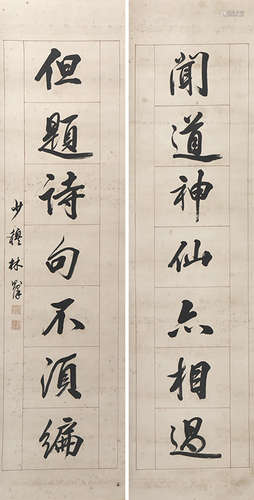 聞道神仙亦相過
但題詩句不須編
少穆林則徐